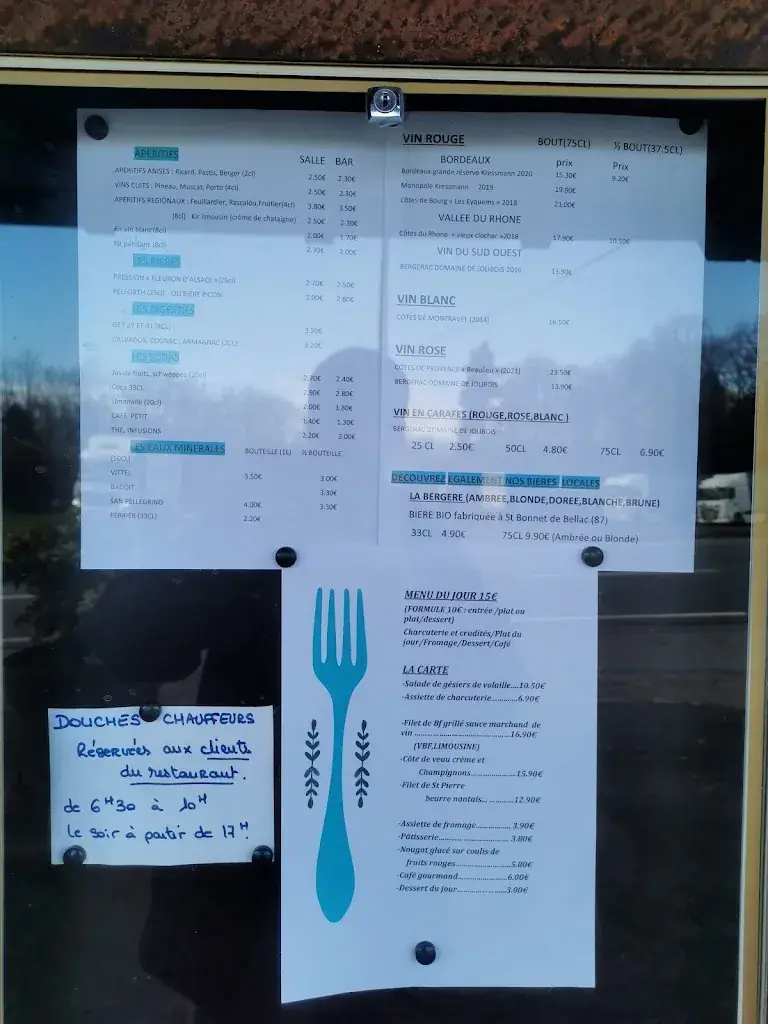 APERITIFS
SALLE BAR
APERITIFS ANISES : Ricard, Pastis, Berger (2cl) 2.50€ 2.30€
VINS CUITS : Pineau, Muscat, Porto (4cl) 2.50€ 2.30€
APERITIFS REGIONAUX : Feuillardier, Rascalou, Fruitier(4cl) 3.80€ 3.50€
(8cl) Kir limousin (crème de chataigne) 2.50€ 2.30€
Kir vin blanc(8cl) 2.00€ 1.70€
Kir pétillant (8cl) 2.30€ 2.00€
LES BIERES
PRESSION « FLEURON D'ALSACE »(25cl) 2.70€ 2.50€
PELFORTH (25cl) - OU BIERE PICON 3.00€ 2.80€
LES DIGESTIFS
GET 27 ET 31 (4CL) 3.20€
CALVADOS, COGNAC, ARMAGNAC (2CL) 3.20€
LES SODAS
Jus de fruits, schweppes (20cl) 2.70€ 2.40€
Coca 33CL 2.90€ 2.80€
Limonade (20cl) 2.00€ 1.80€
CAFE PETIT 1.40€ 1.30€
THE, INFUSIONS 2.20€ 2.00€
LES EAUX MINERALES BOUTEILLE (1L) ½ BOUTEILLE
(50CL)
VITTEL 3.50€ 3.00€
BADOIT 3.30€
SAN PELLEGRINO 4.00€ 3.30€
PERRIER (33CL) 2.20€
VIN ROUGE BOUT(75CL) ½ BOUT(37.5CL)
BORDEAUX prix Prix
Bordeaux grande réserve Kressmann 2020 15.30€ 9.20€
Monopole Kressmann 2019 19.90€
Côtes de Bourg « Les Eyquems » 2018 21.00€
VALLEE DU RHONE
Côtes du Rhone « vieux clocher »2018 17.90€ 10.50€
VIN DU SUD OUEST
BERGERAC DOMAINE DE JOLIBOIS 2016 13.90€
VIN BLANC
COTES DE MONTRAVEL (2014) 16.50€
VIN ROSE
COTES DE PROVENCE « Beaulieu » (2021) 23.50€
BERGERAC DOMAINE DE JOLIBOIS 13.90€
VIN EN CARAFES (ROUGE,ROSE,BLANC )
BERGERAC DOMAINE DE JOLIBOIS
25 CL 2.50€ 50CL 4.80€ 75CL 6.90€
DECOUVREZ EGALEMENT NOS BIERES LOCALES
LA BERGERE (AMBREE,BLONDE,DOREE,BLANCHE,BRUNE)
BIERE BIO fabriquée à St Bonnet de Bellac (87)
33CL 4.90€ 75CL 9.90€ (Ambrée ou Blonde)
MENU DU JOUR 15€
(FORMULE 10€ : entrée /plat ou
plat/dessert)
Charcuterie et crudités/Plat du
jour/Fromage/Dessert/Café
LA CARTE
-Salade de gésiers de volaille....10.50€
-Assiette de charcuterie............6.90€
-Filet de Bf grillé sauce marchand de
vin ...............................16.90€
(VBF,LIMOUSINE)
-Côte de veau crème et
Champignons.....................15.90€
-Filet de St Pierre
beurre nantais... ..........12.90€
-Assiette de fromage.............. 3.90€
-Pâtisserie............................ 3.80€
-Nougat glacé sur coulis de
fruits rouges.....................5.80€
-Café gourmand....................6.00€
-Dessert du jour...................3.00€
DOUCHES CHAUFFEURS
RÉSERVÉES aux clients
du restaurant.
de 6H30 à 10H
le soir à partir de 17H.